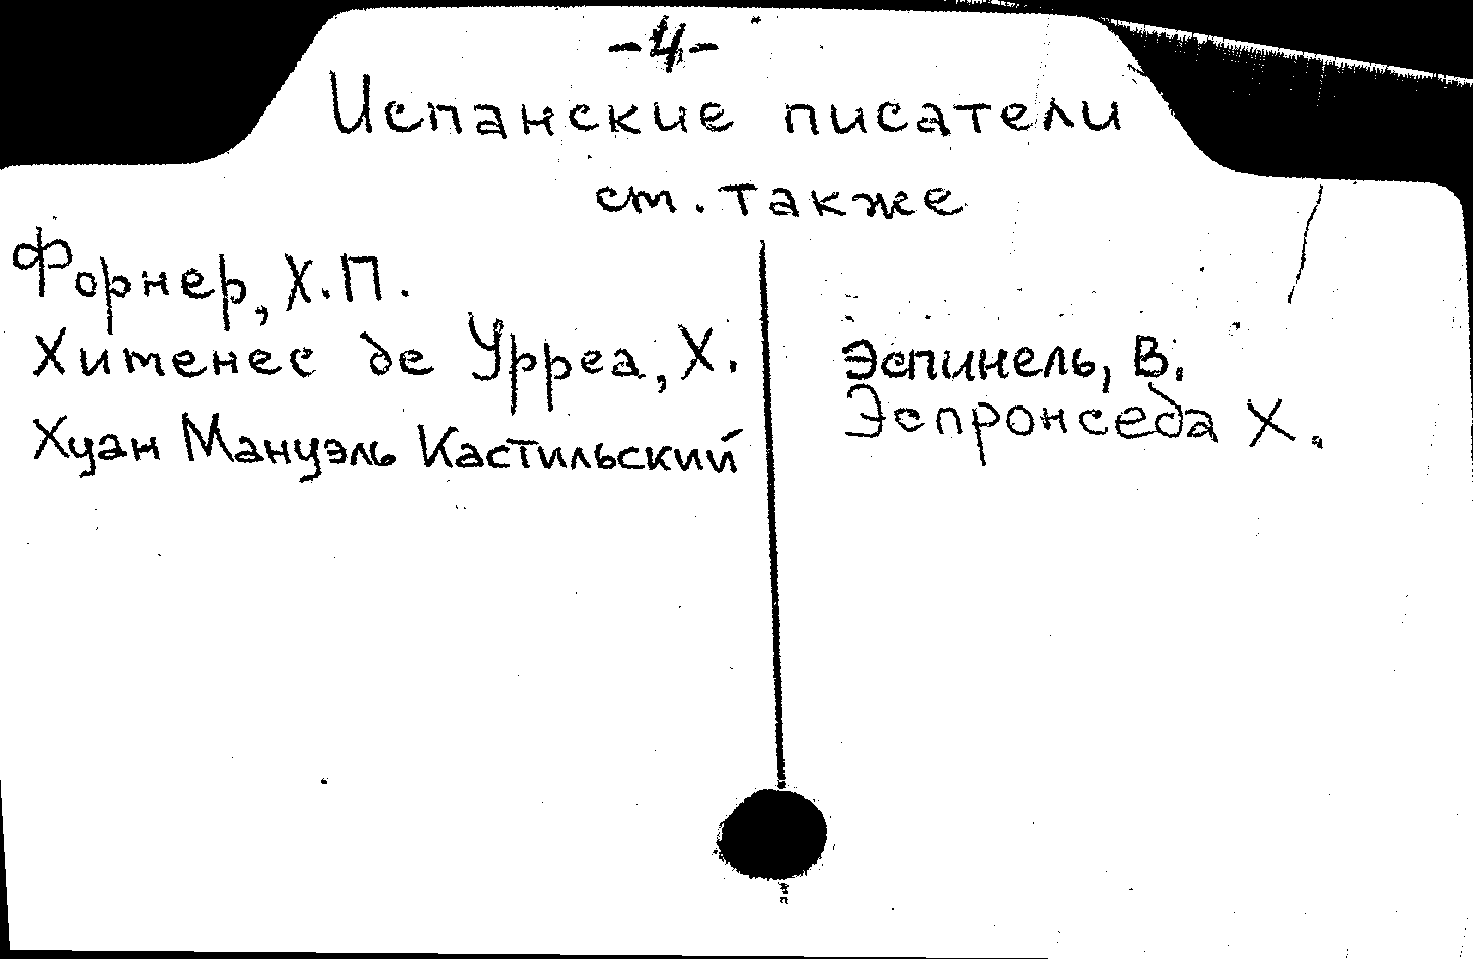 -4-
Испанские писатели
ст. также
Форнер, Х.П.
Хименес де Урреа, Х.
Хуан Мануэль Кастильский
Эспинель, В.
Эспронседа Х.